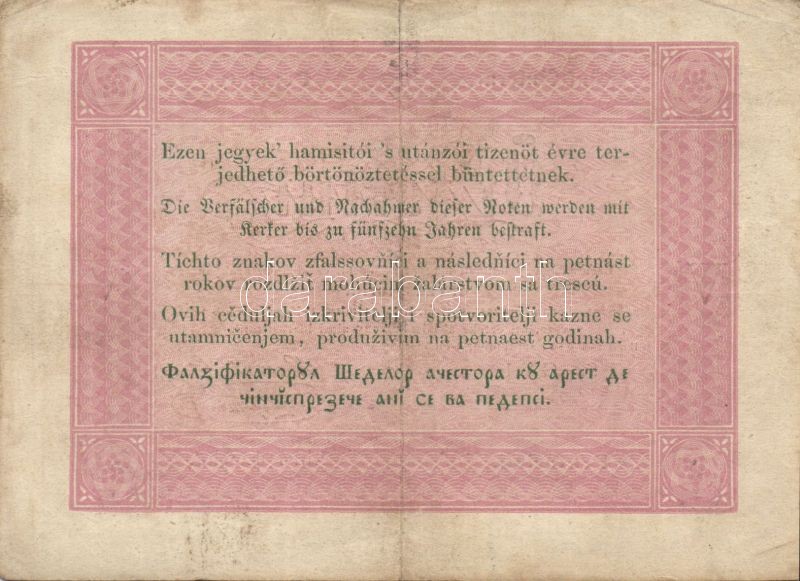 Ezen jegyek' hamisitói 's utánzói tizenöt évre ter-
jedhető börtönöztetéssel büntettetnek.
Die Verfälscher und Nachahmer dieser Noten werden mit
Kerker bis zu fünfzehn Jahren bestraft.
Tíchto znakov zfalssovňíci a následňíci na petnást
rokov rozdlžiť mohúcim žalárstvom sa trescú.
Ovih cĕduljah izkrivitelji i spotvoritelji kazne se
utamničenjem, produživim na petnaest godinah.
Фалꙁіфікаторꙋл Шеделор ачестора кꙋ арест де
чінчїспреꙁече анї се ва педепсі.
darabanth